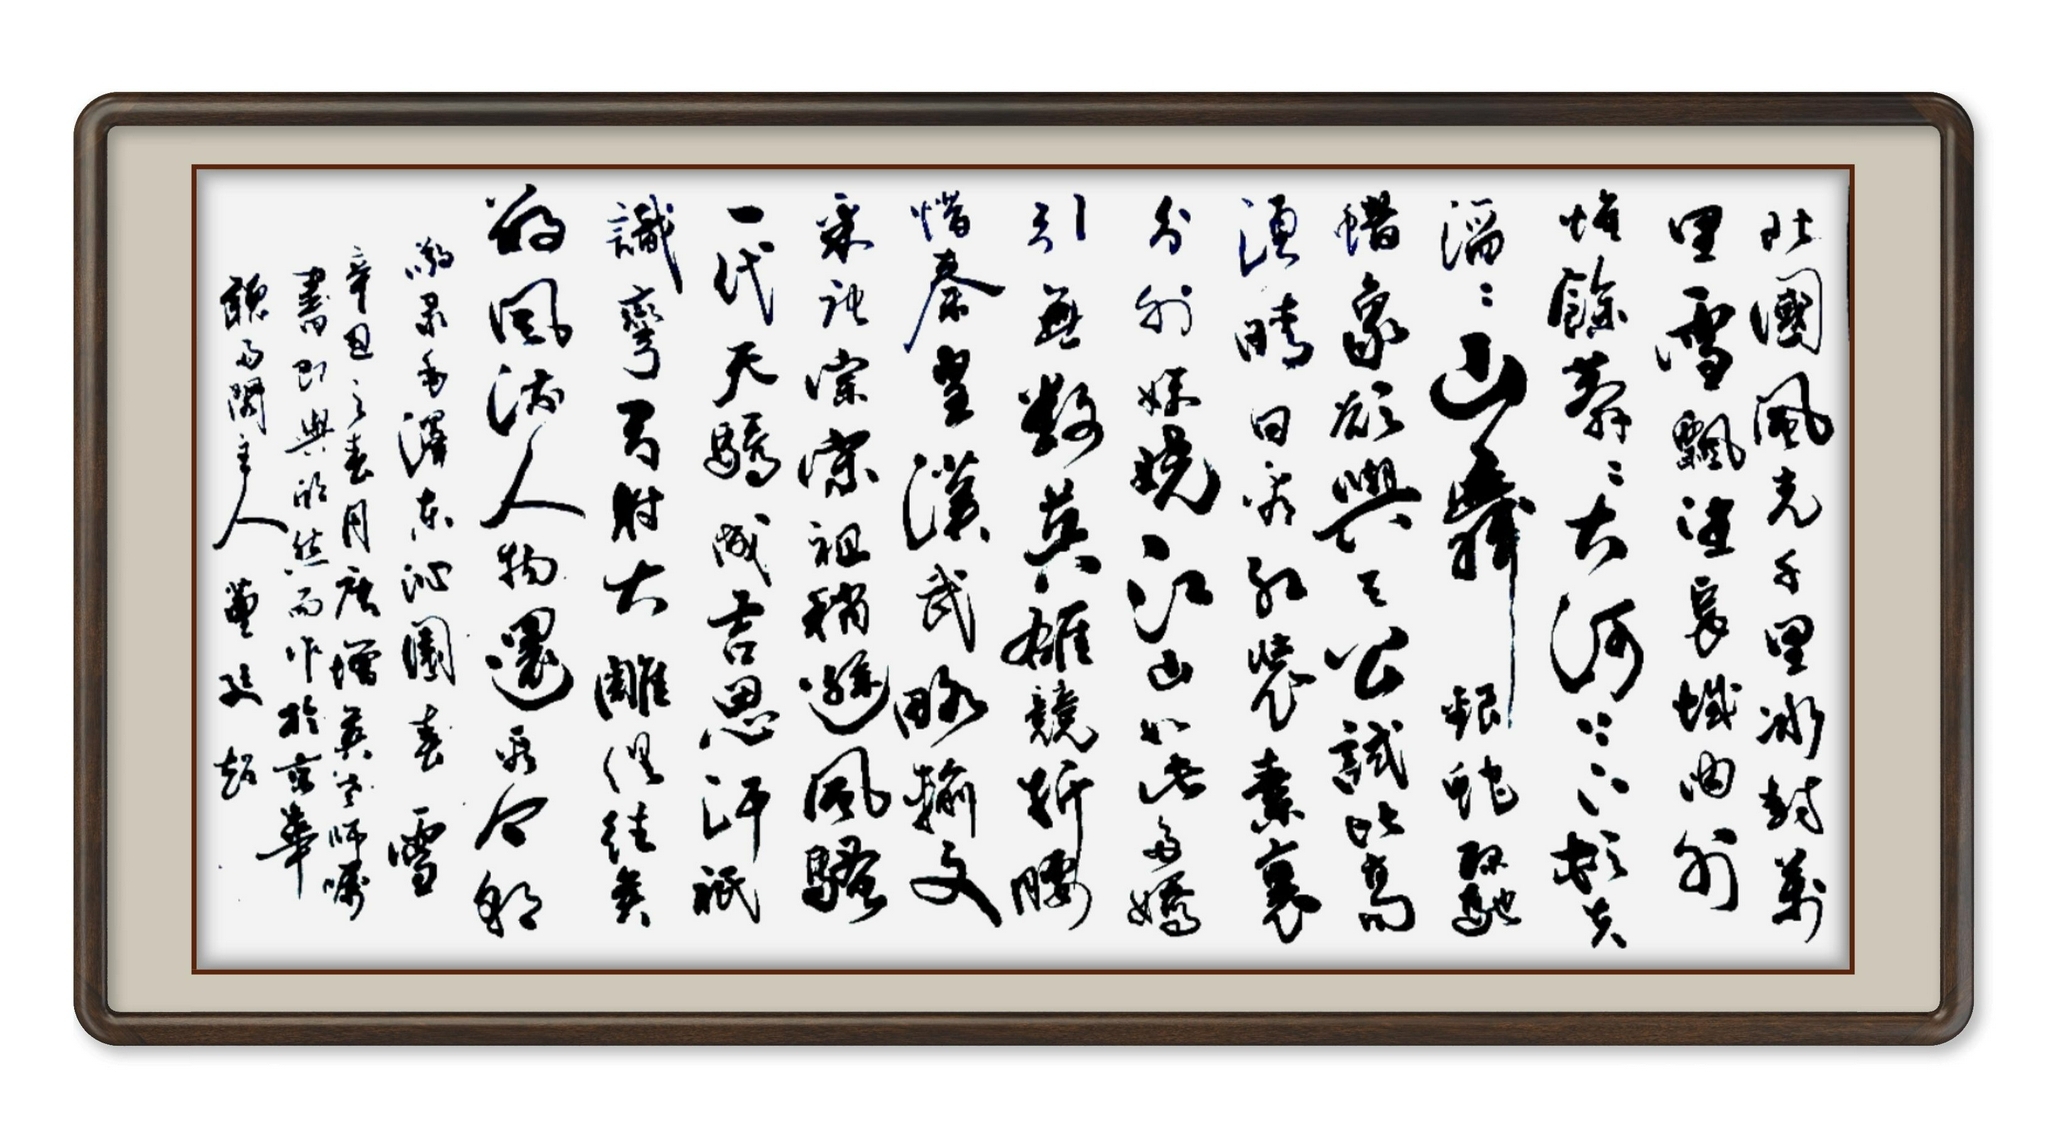 北國風光千里冰封萬
里雪飄望長城內外
惟餘莽〻大河上下頓失
滔〻山舞銀蛇原馳
蠟象欲與天公試比高
須晴日看紅裝素裹
分外妖嬈江山如此多嬌
引無數英雄競折腰
惜秦皇漢武略輸文
采唐宗宋祖稍遜風騷
一代天驕成吉思汗祇
識彎弓射大雕俱往矣
數風流人物還看今朝
敬录毛澤東沁園春雪
辛丑之春月應增師囑
書即興欣然而作於京華
閣主人董